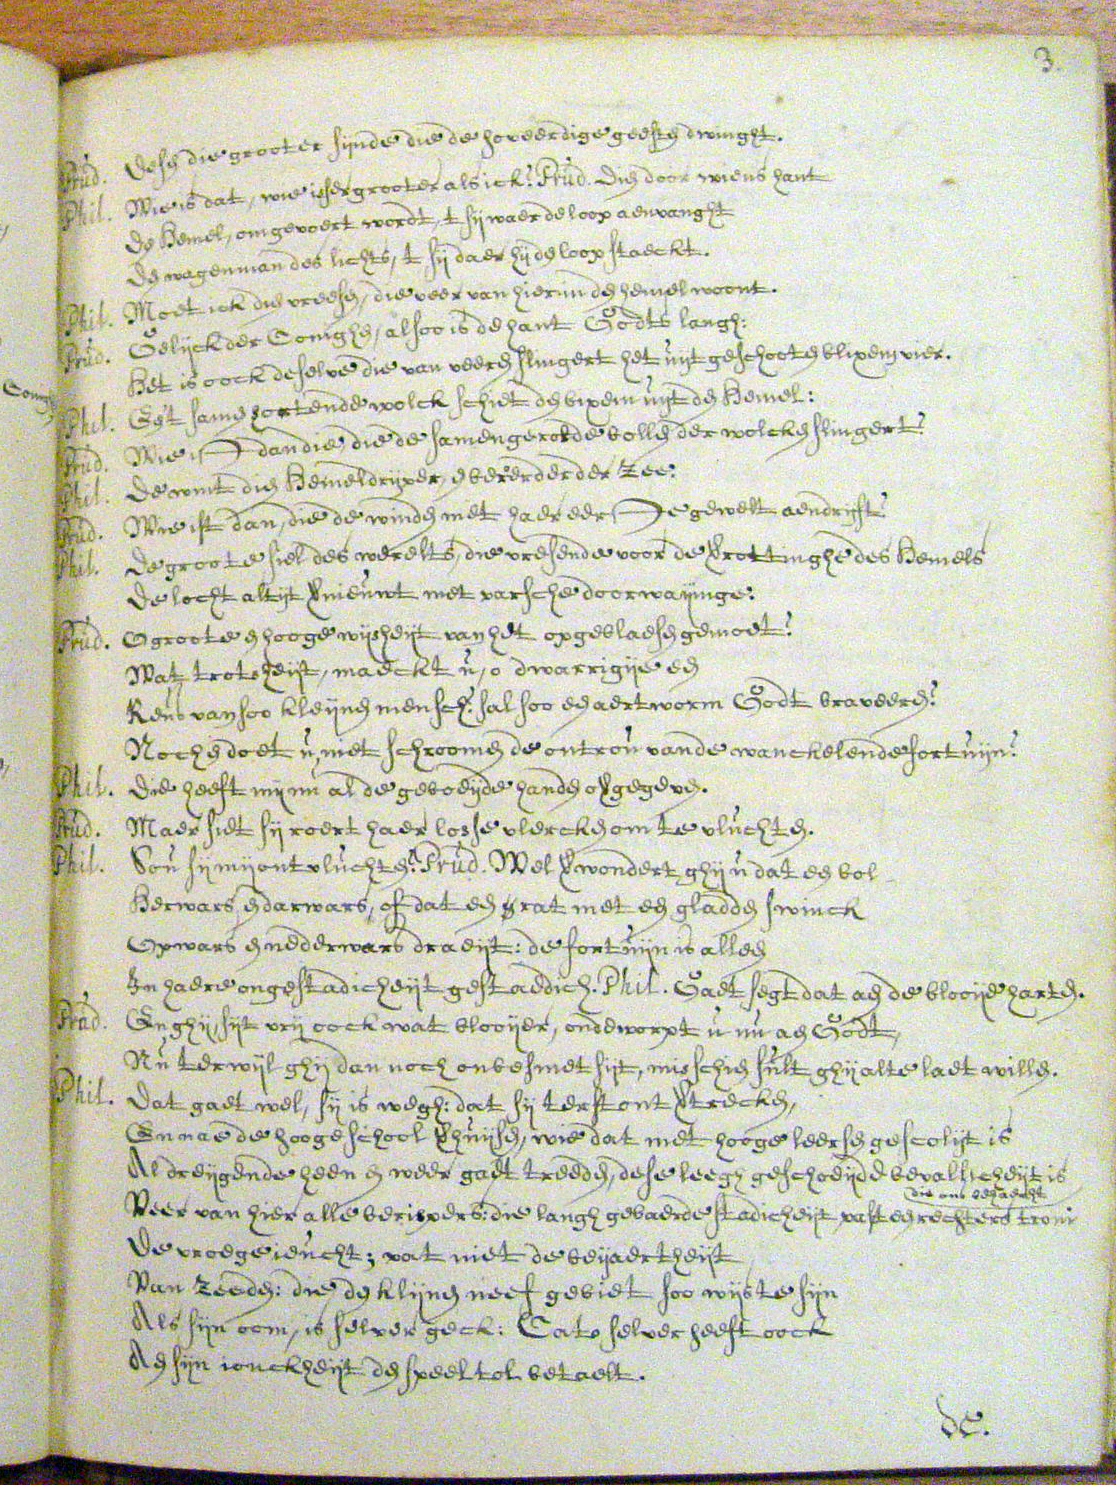 3.
Prud. Desen die grooter sijnde die de hoveerdige geesten dwinght.
Phil. Wie is dat, wie isser grooter als ick? Prud. Dien door wiens hant
Den Hemel, omgevoert wordt, t sij waer de loop aenvanght
Den wagenman des lichts, t sij daer hij den loop staeckt.
Phil. Moet ick dien vreesen, die veer van hier in den hemel woont.
Prud. Gelijck der Coninghen, alsoo is de hant Godts langh:
Het is oock deselve die van veeren slingert het uijtgeschooten blixem vier.
Phil. Een t samen hortende wolck schiet den blixem uijt den Hemel:
Prud. Wie is dan die, die de samengerolde bollen der wolcken slingert?
Phil. De wint dien Hemeldrijver, en beroerder der zee:
Prud. Wie ist dan, die de winden met haer eer gewelt aendrijft?
Phil. De groote siel des werelts, die vresende voor de verottinghe des Hemels
De locht altijt vernieuwt met varsche doorwaijinge:
Prud. O groote en hooge wijsheijt van het opgeblaesen gemoet!
Wat trotsheijt, maeckt u, o dwarrigije een
Reus van soo kleijnen mensch? sal soo een aertworm Godt braveeren?
Noch en doet u, niet schroomen de ontrou vande wanckelende fortuijn?
Phil. Die heeft mij nu al de geboeijde handen overgegeven.
Prud. Maer siet sij roert haer losse vlercken om te vluchten.
Phil. Sou sij mij ontvluchten? Prud. Wel verwondert ghij u dat een bol
Herwars, en darwars, of dat een rat met een gladden swinck
Opwars en nedderwars draeijt: de fortuijn is alleen
In haere ongestadicheijt gestaedich. Phil. Gaet segt dat aen de blooije harten.
Prud. En ghij, sijt vrij oock wat blooijer, onderworpt u nu aen Godt,
Nu terwijl ghij dan noch onbesmet sijt, misschien sult ghij al te laet willen.
Phil. Dat gaet wel, sij is wegh: dat sij terstont vertrecken,
En nae de hooge school verhuijsen, wie dat met hooge leersen gescolijt is
Al dreijgende heen en weer gaet treeden, dese leegh geschoeijde bevallicheijt is
die ons veracht
Veer van hier alle berispers: die langh gebaerde stadicheijt past een rechters troni
De vroege ieucht; vat niet de bejaertheijt
Van zeeden: die den klijnen neef gebiet soo wijs te sijn
Als sijn oom, is selver geck: Cato selver heeft oock
Aen sijn ionckheijt den speeltol betaelt.
de.